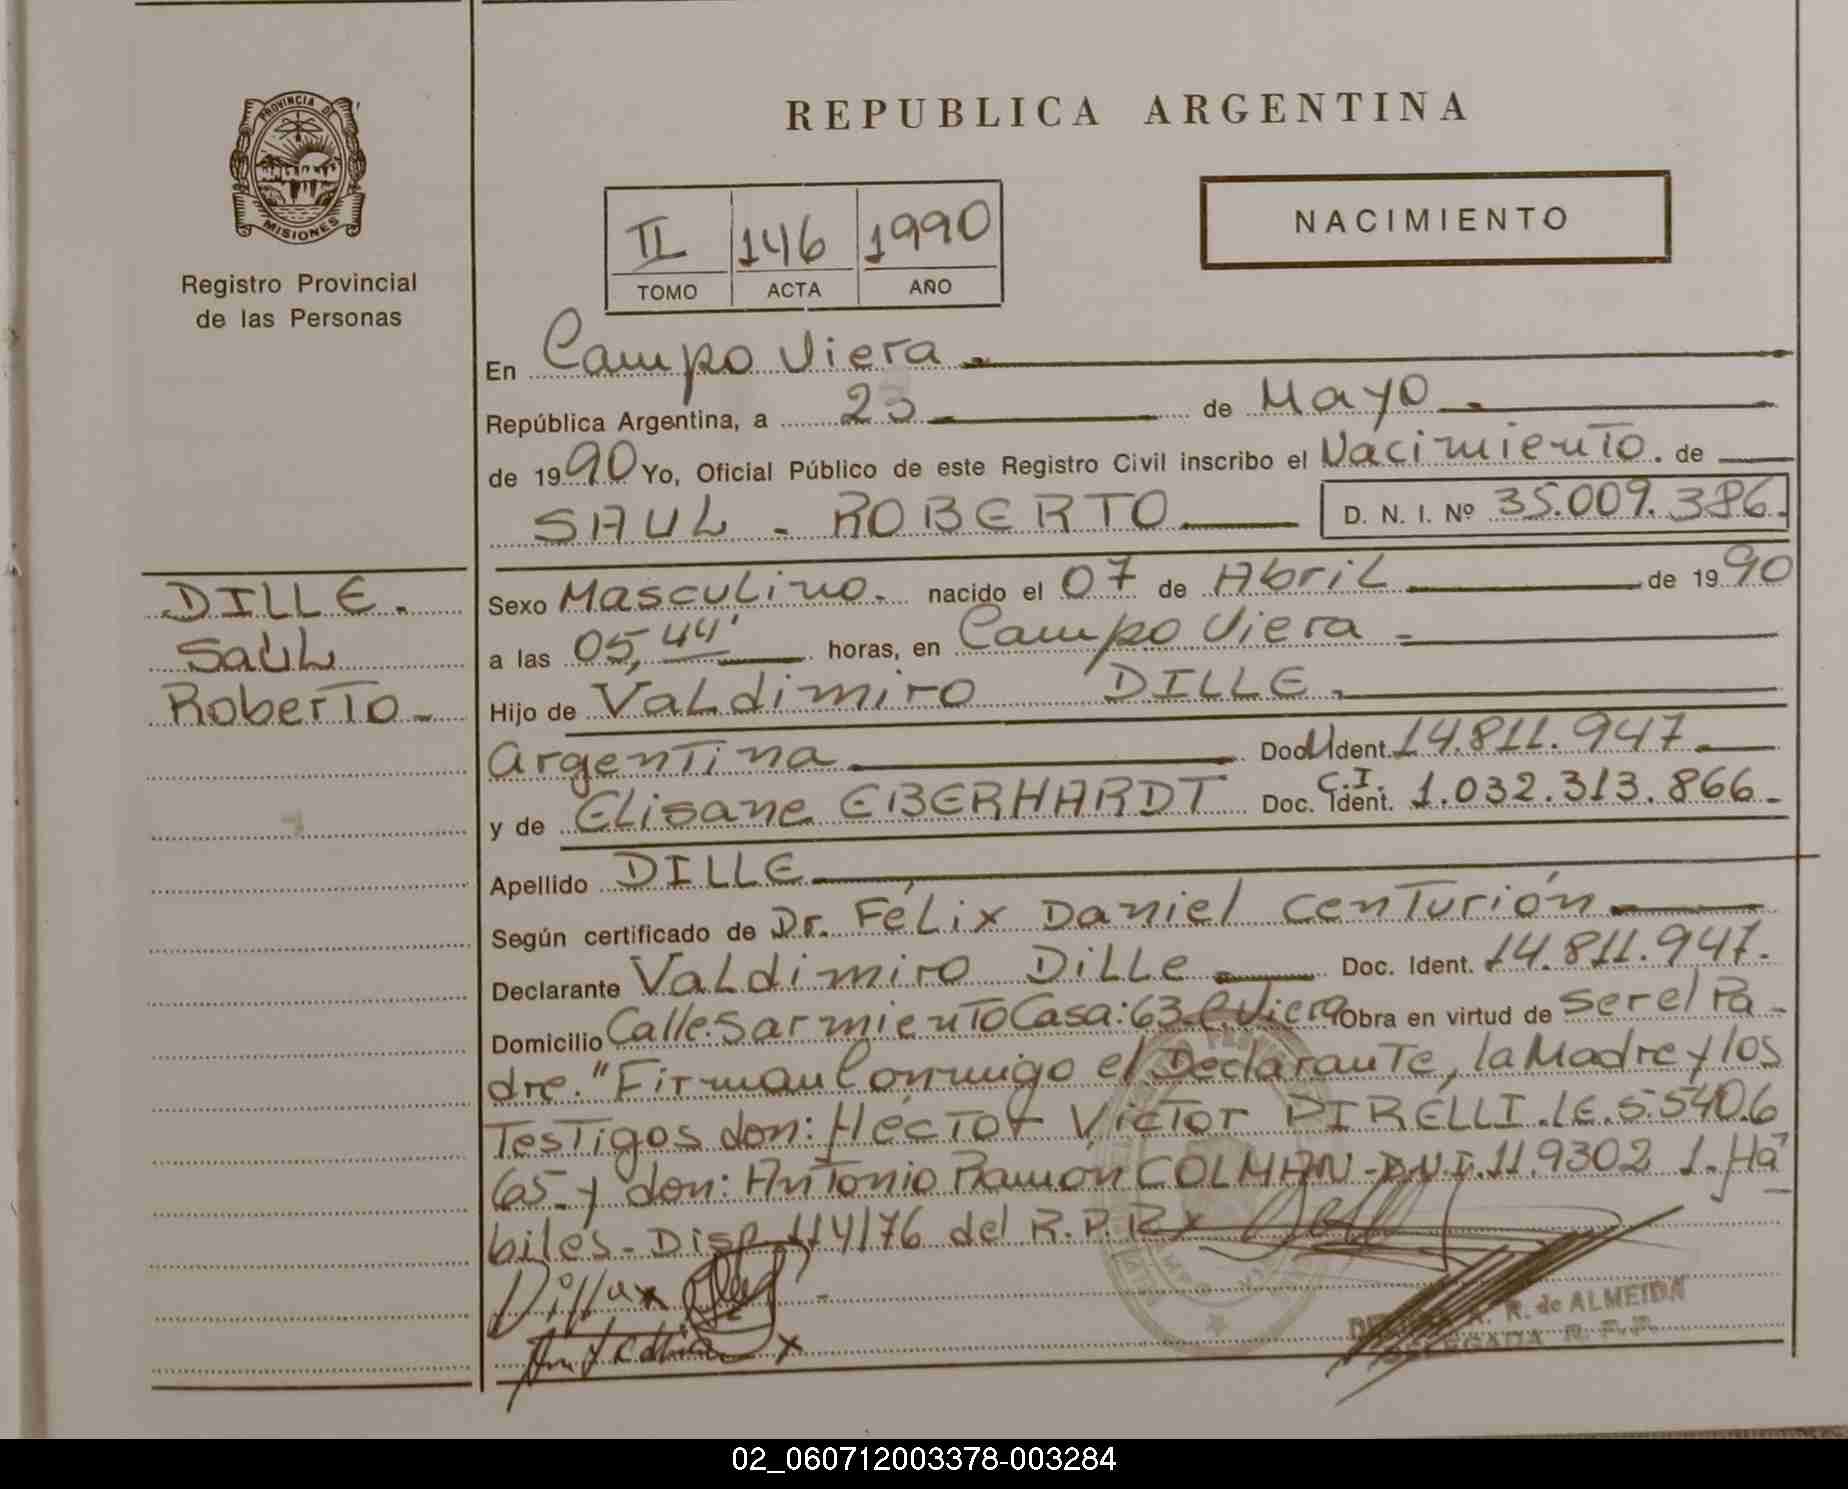 PROVINCIA DE
MISIONES
Registro Provincial
de las Personas
REPUBLICA ARGENTINA
II 146 1990
TOMO ACTA AÑO
NACIMIENTO
En Campo Viera
República Argentina, a 23 de Mayo
de 1990 Yo, Oficial Público de este Registro Civil inscribo el Nacimiento. de
SAUL - ROBERTO D. N. I. Nº 35.009.386.
DILLE.
Saúl
Roberto-
Sexo Masculino. nacido el 07 de Abril de 1990
a las 05,44' horas, en Campo Viera
Hijo de Valdimiro DILLE.
Argentina Doc. Ident. 14.811.947
y de Elisane EBERHARDT C.I. Doc. Ident. 1.032.313.866-
Apellido DILLE
Según certificado de Dr. Félix Daniel Centurión
Declarante Valdimiro Dille Doc. Ident. 14.811.947.
Domicilio Calle:Sarmiento Casa:63-C.Viera Obra en virtud de Ser el Pa-
dre."Firman Conmigo el Declarante, la Madre y los
Testigos don: Héctor Víctor PIRELLI.LE.5.5406
65-y don: Antonio Ramón COLMAN-D.N.I.11.9302 1.Há
biles-Disp.114/76 del R.P.P.
R. de ALMEIDA
DELEGADA R. P. P.
02_060712003378-003284